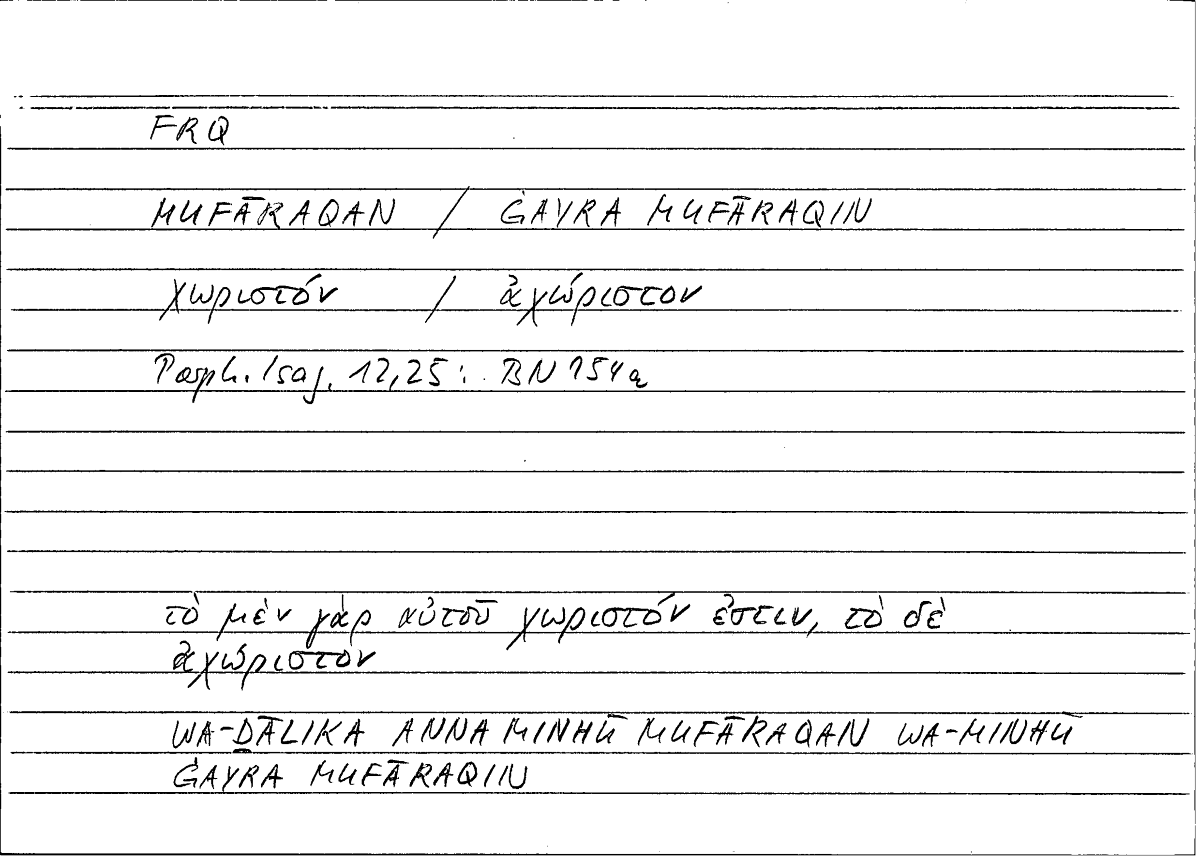 FRQ
MUFĀRAQAN / ĠAYRA MUFĀRAQIN
χωριστόν / ἀχώριστον
Porph. Isag. 12,25: BN 154a
τὸ μὲν γὰρ αὐτοῦ χωριστόν ἐστιν, τὸ δὲ
ἀχώριστον
WA-ḎĀLIKA ANNA MINHŪ MUFĀRAQAN WA-MINHŪ
ĠAYRA MUFĀRAQIN